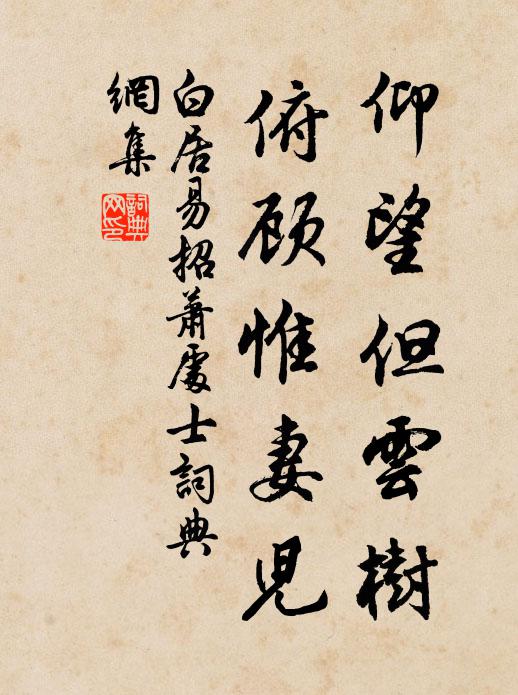 仰望但雲樹
俯顧惟妻兒
白居易招蕭處士詞典
網集
詞典
网印